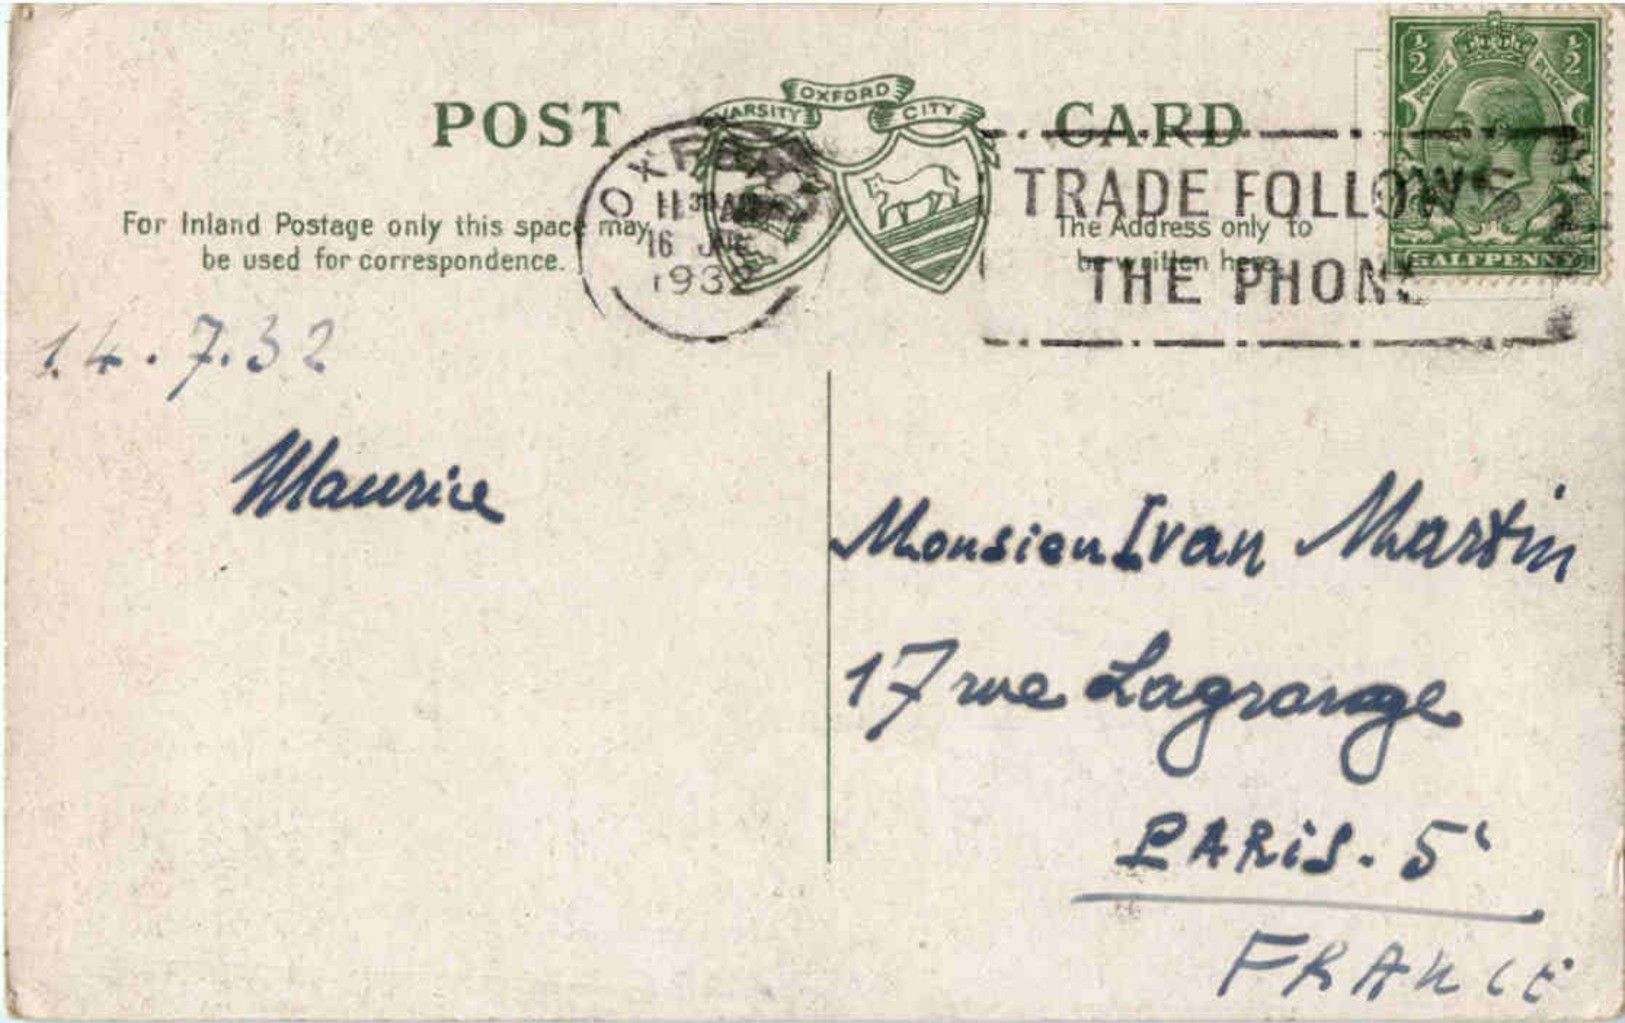 POST CARD
VARSITY OXFORD CITY
OXFORD
11 30 AM
16 JUL
1932
TRADE FOLLOWS
THE PHONE
For Inland Postage only this space may
be used for correspondence.
The Address only to
be written here
½ ½
POSTAGE REVENUE
HALFPENNY
14.7.32
Maurice
Monsieur Ivan Martin
17 rue Lagrange
PARIS. 5e
FRANCE